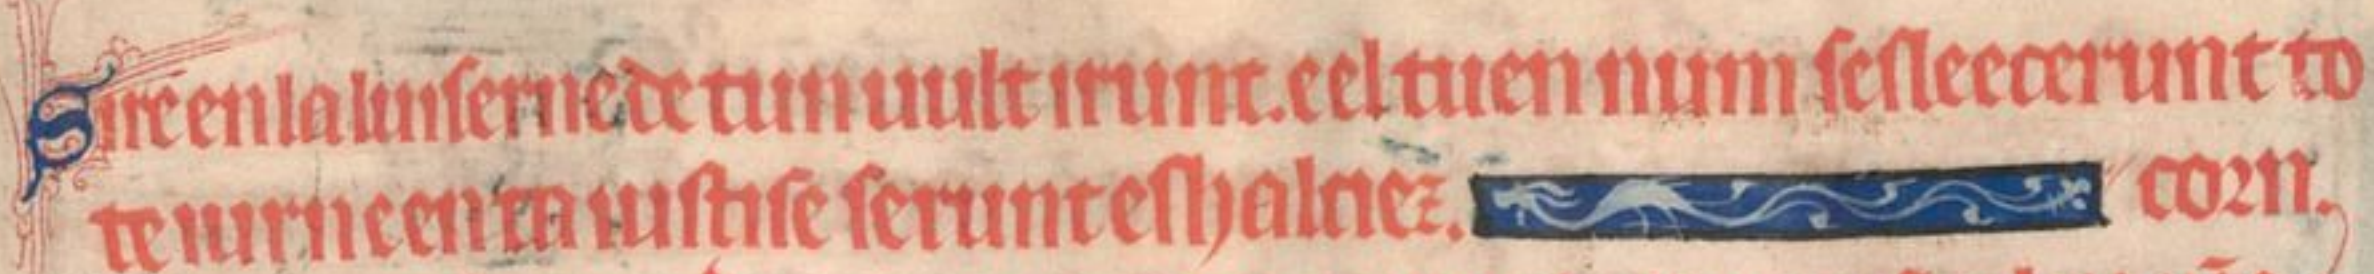 Sire en la luiserne de tun uult irunt. e el tuen num sesleecerunt to
te iurn e en ta iustise serunt eshalciez. corn.